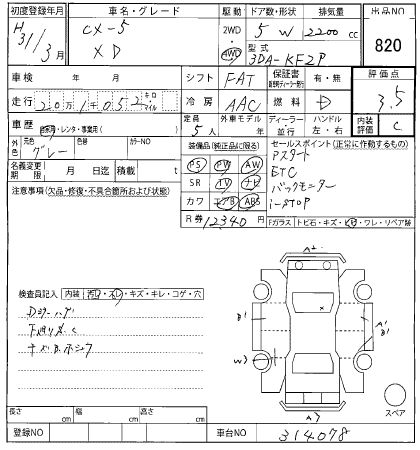 初度登録年月 車名・グレード 駆動 ドア数・形状 排気量 出品NO
H31/3月 CX-5 XD 2WD 4WD 5 W 2200 cc 820
型式 3DA-KF2P
車検 年 月 シフト FAT 保証書 有・無 評価点 3.5
走行 20万1千052 キロ マイル 冷房 AAC 燃料 D
車歴 自家用・レンタ・事業用( ) 定員 5人 外車モデル ディーラー 並行 ハンドル 左・右 内装評価 C
外色 元色 グレー 色替 カラーNO
装備品(純正品に限る) セールスポイント(正常に作動するもの)
名義変更期限 月 日迄 積載 t
PS PW AW
SR TV ナビ
カワ エアB ABS
R券 12,340円
アスタート
ETC
バックモニター
i-STOP
注意事項(欠品・修復・不具合箇所および状態)
Fガラス トビ石・キズ・ヒビ・ワレ・リペア跡
検査員記入 内装 汚れ・スレ・キズ・キレ・コゲ・穴
Dラーハゲ
下廻りサビ
A2
B1
A1
B1
W3
A3
スペア
長さ cm 幅 cm 高さ cm
登録NO 車台NO 314078